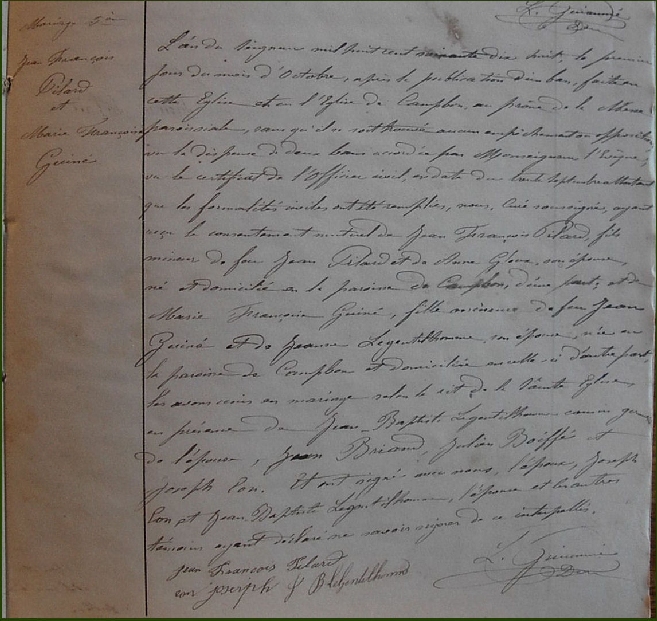 L. Guiaudé
Mariage
Jean François
Pilard
et
Marie Françoise
Guiné
L'an du Seigneur mil huit cent soixante dix huit, le premier
jour du mois d'Octobre, après la publication d'un ban, faite en
cette Eglise et en l'Eglise de Campbon, au prône de la Messe
paroissiale, sans qu'il se soit trouvé aucun empêchement ou opposition
vu la dispense de deux bans accordée par Monseigneur l'Evêque,
vu le certificat de l'Officier civil, en date du trente Septembre attestant
que les formalités civiles ont été remplies, nous, Curé soussigné, ayant
reçu le consentement mutuel de Jean François Pilard, fils
mineur de feu Jean Pilard et de son épouse,
né et domicilié en la paroisse de Campbon, d'une part; et de
Marie Françoise Guiné, fille de feu Jean
Guiné et de Jeanne Legentilhomme, son épouse, née en
la paroisse de Campbon et domiciliée en celle-ci d'autre part
les avons unis en mariage selon le rit de la Sainte Eglise,
en présence de Jean-Baptiste Legentilhomme cousin
de l'épouse, Jean Briand, Julien Boiffé et
Joseph Con. Et ont signé avec nous, l'époux, Joseph
Con et Jean Baptiste Legentilhomme, l'épouse et les autres
témoins ayant déclaré ne savoir signer de ce interpellés.
Jean François Pilard
Con joseph J B Legentelhomme